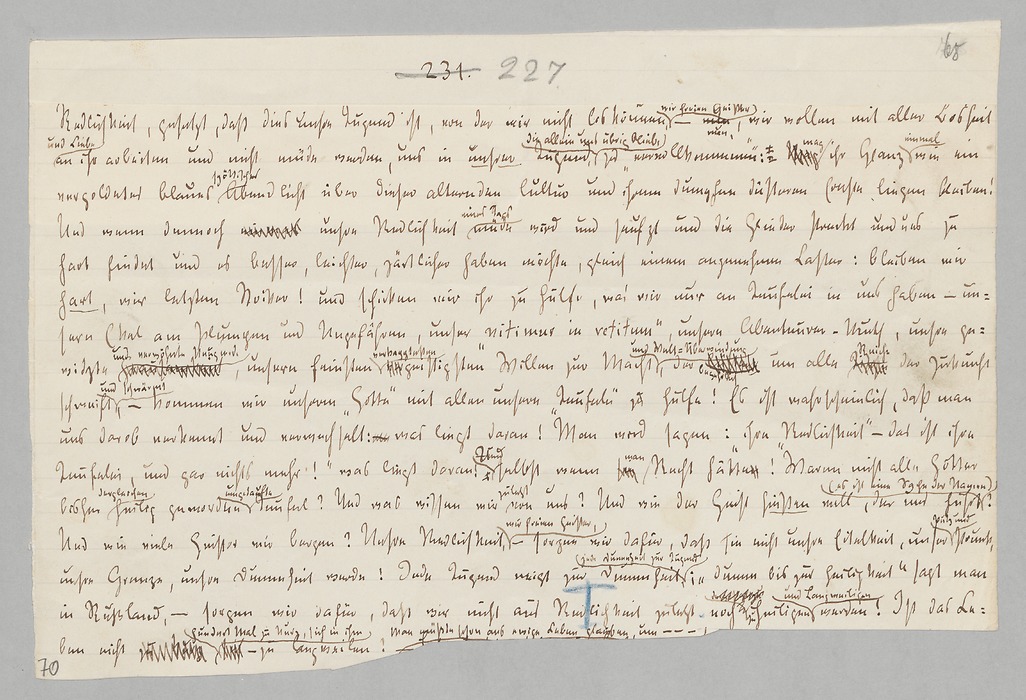 231. 227
68
wir freien Geister
Redlichkeit, gesetzt, daß dies unsre Tugend ist, von der wir nicht loskönnen, — nun, wir wollen mit aller Bosheit
und Liebe die allein uns übrig blieb, mag einmal
an ihr arbeiten und nicht müde werden, uns in unsrer Tugend zu „vervollkommnen“: ihr Glanz wie ein
spöttisches
vergoldetes blaues Abendlicht über dieser alternden Cultur und ihrem dumpfen düsteren Ernste liegen bleiben!
eines Tags
Und wenn dennoch unsre Redlichkeit müde wird und seufzt und die Glieder streckt und uns zu
hart findet und es besser, leichter, zärtlicher haben möchte, gleich einem angenehmen Laster: bleiben wir
hart, wir letzten Stoiker! und schicken wir ihr zu Hülfe, was wir nur an Teufelei in uns haben — un=
sern Ekel am Plumpen und Ungefähren, unser „nitimur in vetitum“, unsern Abenteurer-Muth, unsre ge=
und verwöhnte Neugierde verkapptesten und Welt=Überwindung Reiche
witzte, unsern feinsten geistigsten Willen zur Macht, der begehrlich um alle der Zukunft
und schwärmt
schweift — kommen wir unserm „Gotte“ mit allen unsern „Teufeln“ zu Hülfe! Es ist wahrscheinlich, daß man
uns darob verkennt und verwechselt: was liegt daran! Man wird sagen: ihre „Redlichkeit“ — das ist ihre
Und man
Teufelei, und gar nichts mehr!“ was liegt daran! selbst wenn Recht hätte! Waren nicht alle Götter
dergleichen umgetaufte zuletzt (es ist eine Sache der Namen)
bisher heilig gewordene Teufel? Und was wissen wir von uns? Und wie der Geist heißen will, der uns führt?
wir freien Geister, Putz und
Und wie viele Geister wir bergen? Unsre Redlichkeit, — sorgen wir dafür, daß sie nicht unsre Eitelkeit, unser Prunk,
jede Dummheit zur Tugend
unsre Grenze, unsre Dummheit werde! Jede Tugend neigt zur Dummheit; „dumm bis zur Heiligkeit“ sagt man
und Langweiligen
in Rußland, — sorgen wir dafür, daß wir nicht aus Redlichkeit zuletzt noch zu Heiligen werden! Ist das Le=
hundert Mal zu kurz, sich in ihm man müßte schon ans ewige Leben glauben, um — — —
ben nicht — zu langweilen!
70